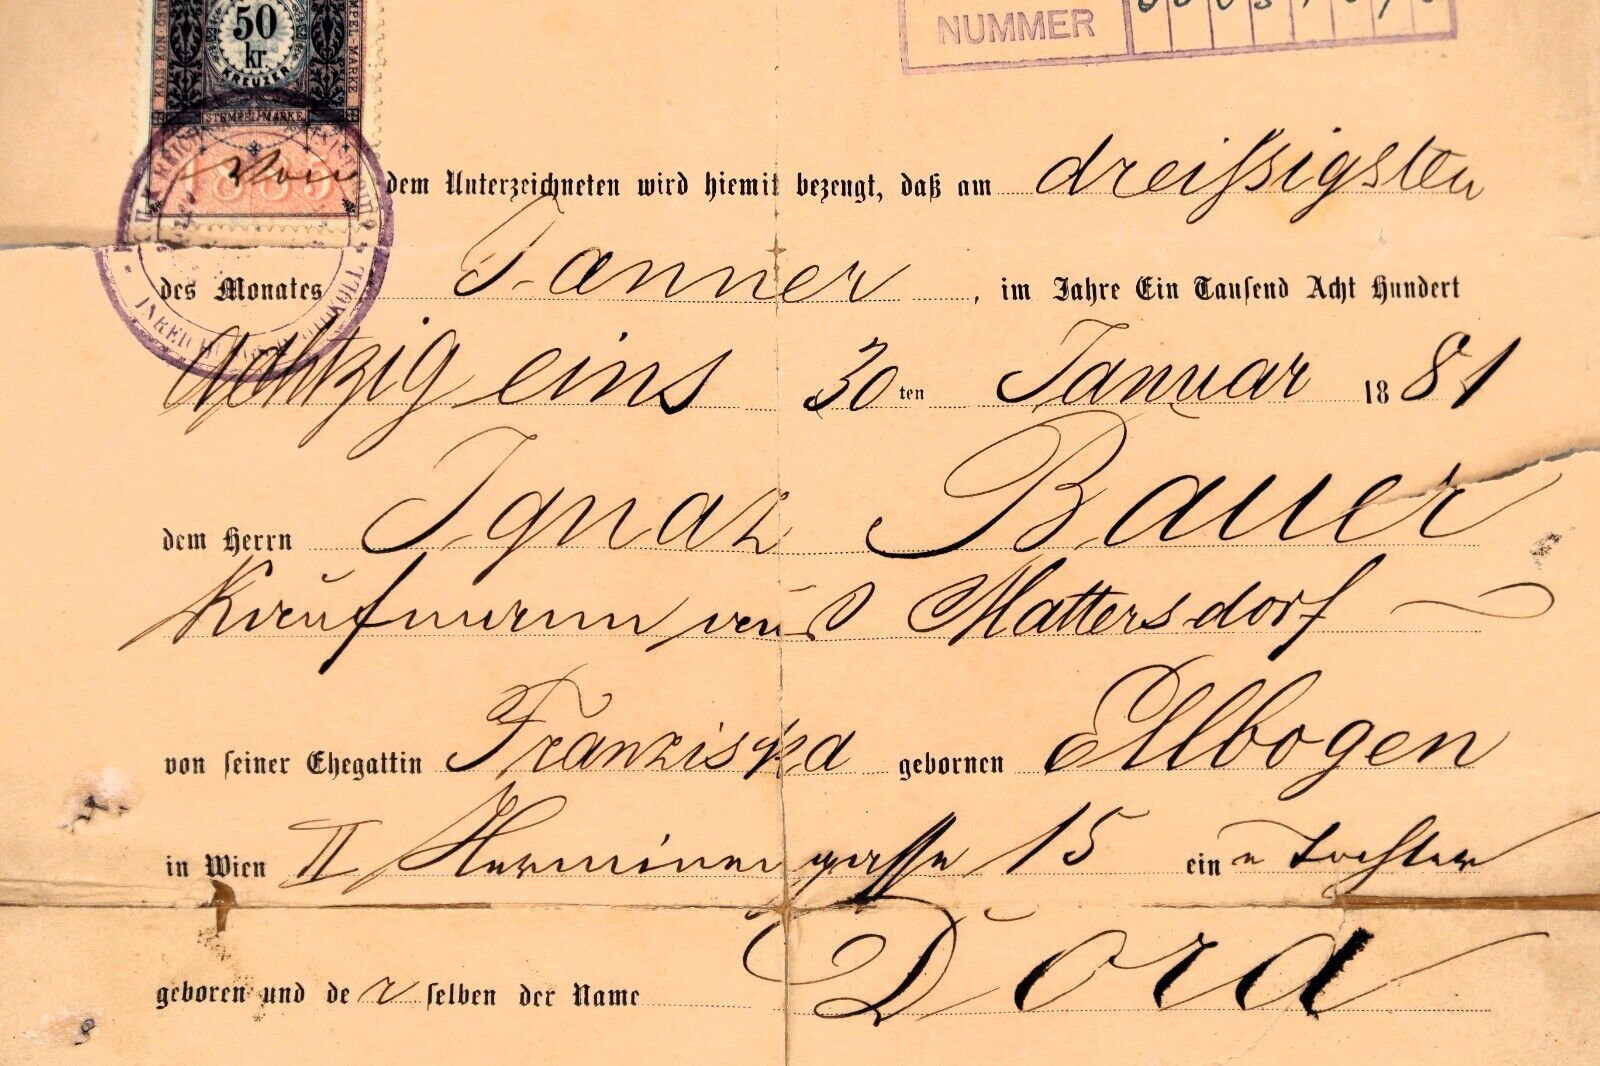 50
kr.
KREUZER
STEMPEL-MARKE
1885
NUMMER
Von dem Unterzeichneten wird hiemit bezeugt, daß am dreißigsten
des Monates Janner, im Jahre Ein Tausend Acht Hundert
Achtzig eins 30ten Januar 1881
dem Herrn Ignaz Bauer
Kaufmann aus Mattersdorf
von seiner Ehegattin Franziska gebornen Ellbogen
in Wien II Herminengasse 15 eine Tochter
geboren und derselben der Name Dora